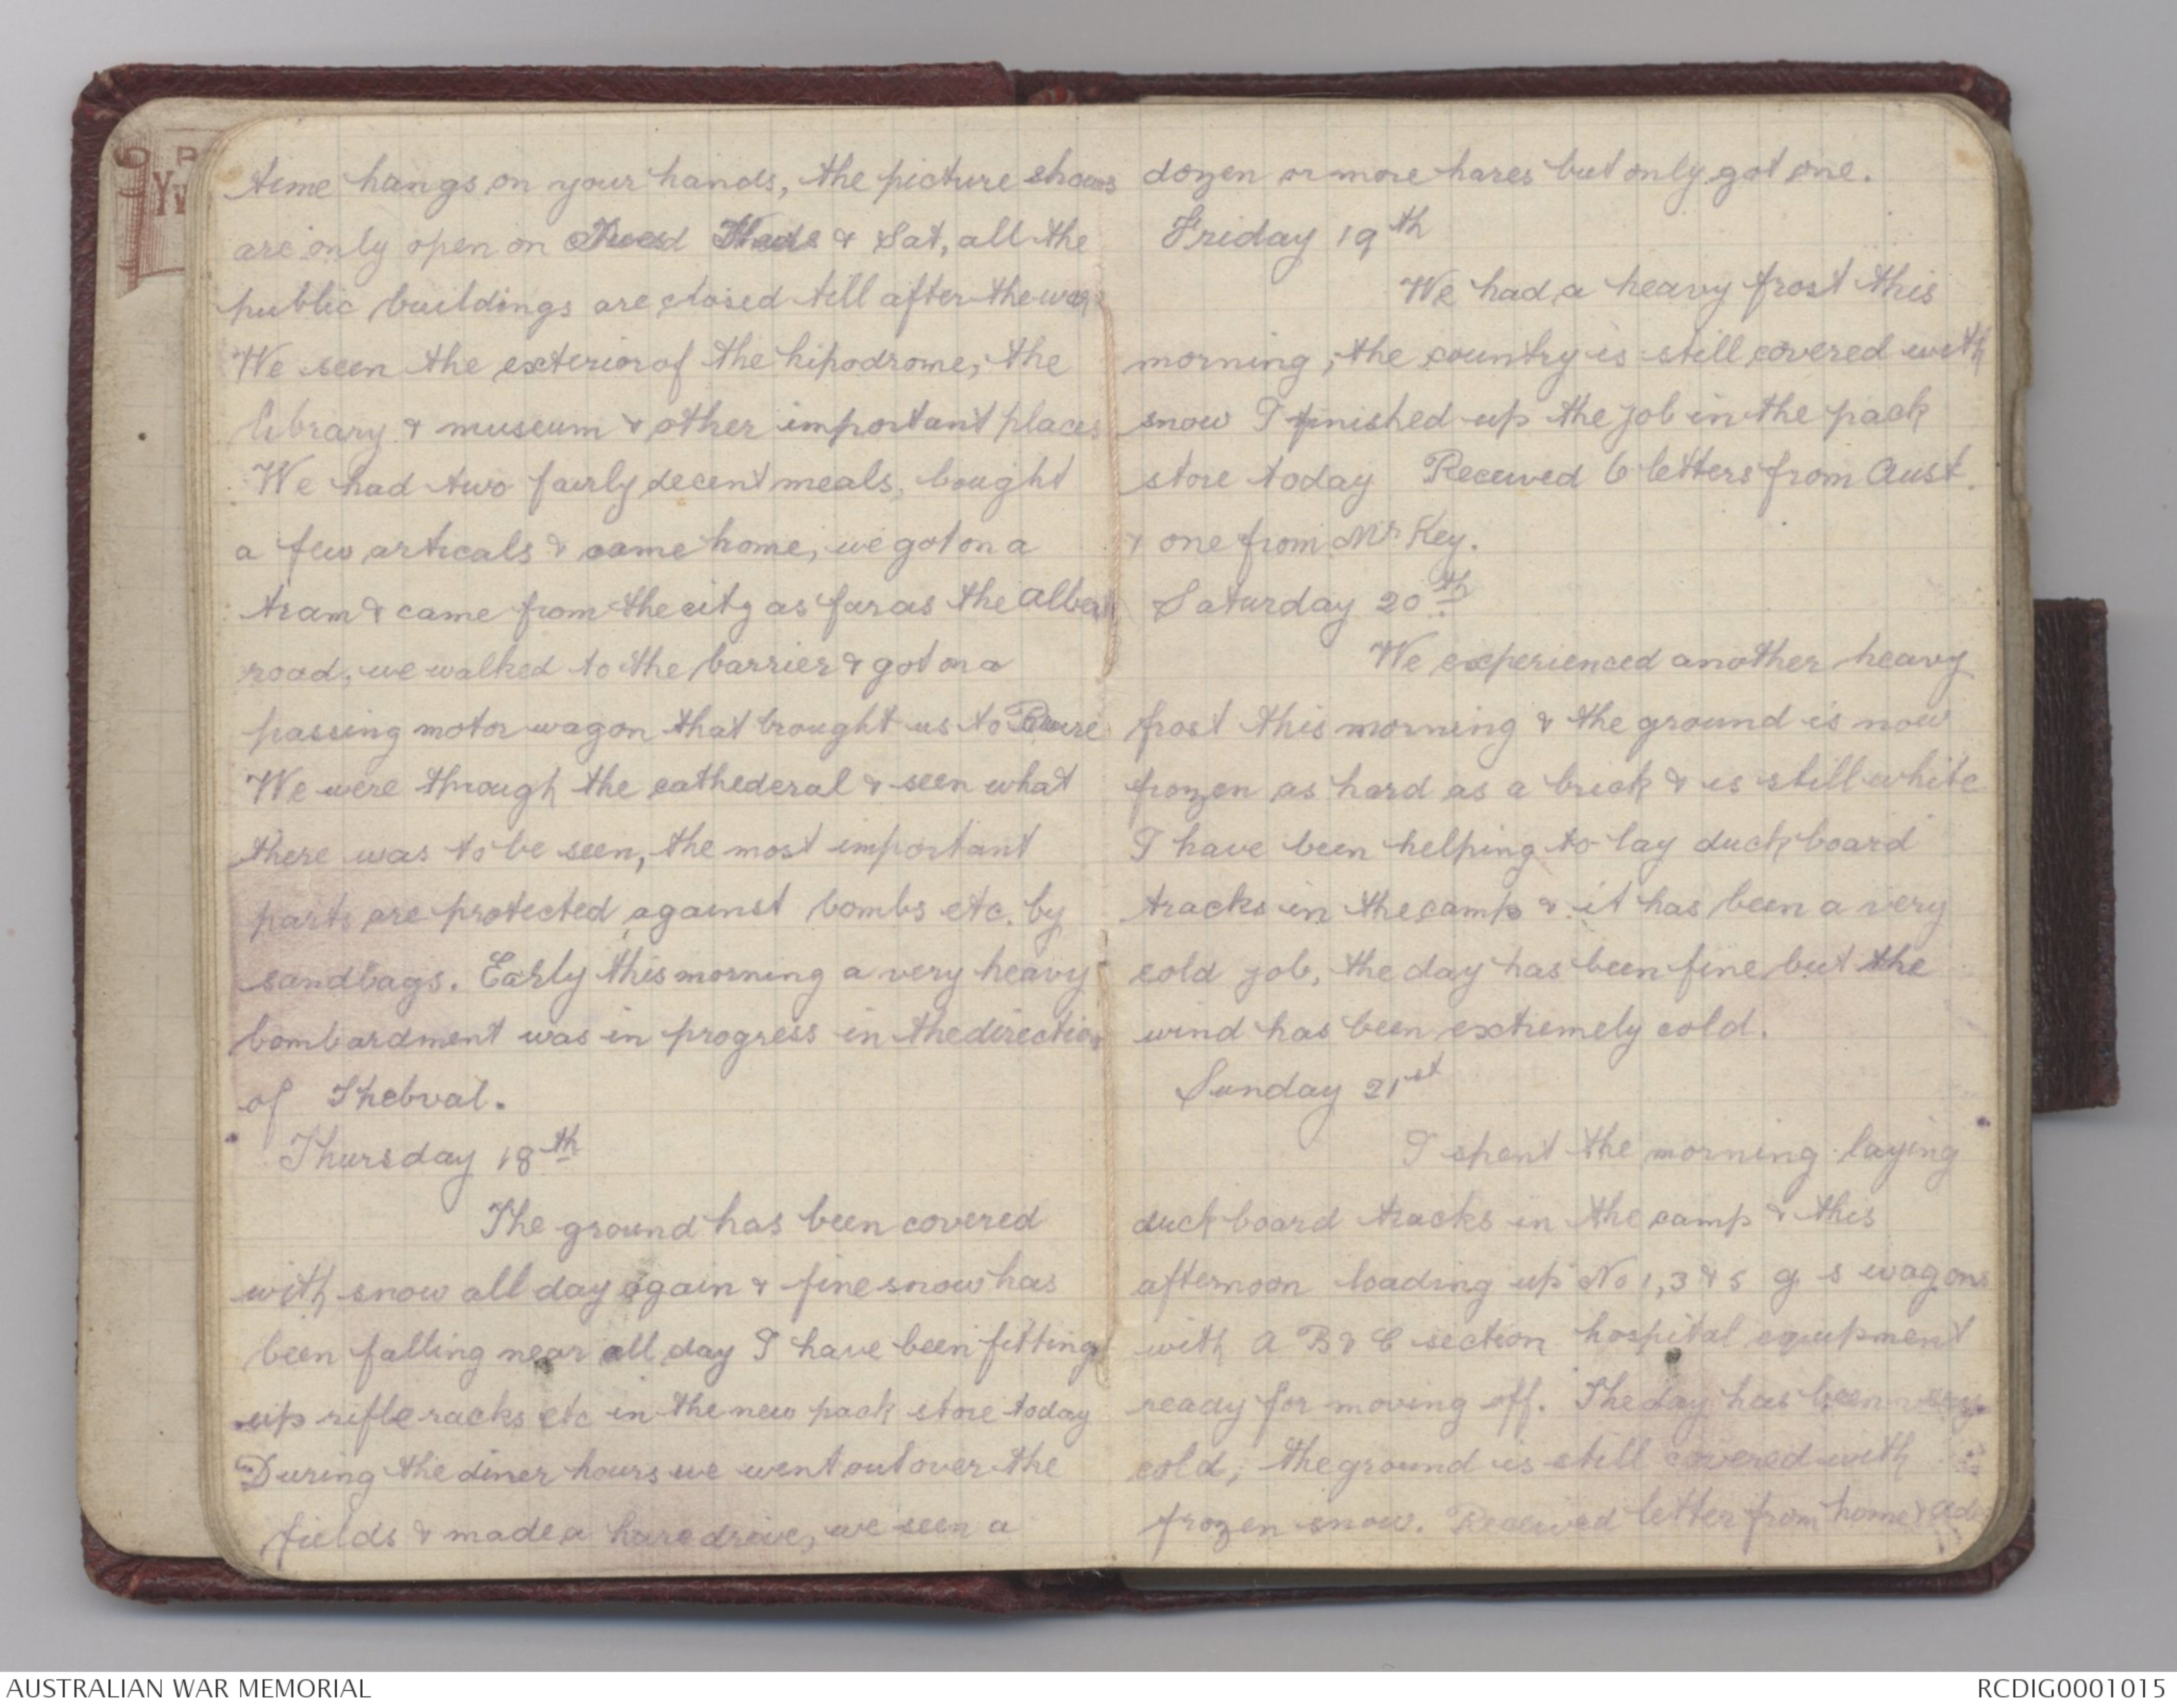 time hangs on your hands, the picture shows
are only open on & Sat, all the
public buildings are closed till after the war
We seen the exterior of the hipodrome, the
library & museum & other important places
We had two fairly decent meals, bought
a few articals & came home, we got on a
tram & came from the city as far as the Albert
road, we walked to the barrier & got on a
passing motor wagon that brought us to
We were through the cathederal & seen what
there was to be seen, the most important
parts are protected against bombs etc. by
sandbags. Early this morning a very heavy
bombardment was in progress in the direction
of Thebval.
Thursday 18th
The ground has been covered
with snow all day again & fine snow has
been falling near all day I have been fitting
up rifle racks etc in the new pack store today
During the diner hours we went out over the
fields & made a hare drive, we seen a
dozen or more hares but only got one.
Friday 19th
We had a heavy frost this
morning, the country is still covered with
snow I finished up the job in the pack
store today Received 6 letters from Aust.
& one from Mr Key.
Saturday 20th
We experienced another heavy
frost this morning & the ground is now
frozen as hard as a brick & is still white
I have been helping to lay duckboard
tracks in the camp & it has been a very
cold job, the day has been fine but the
wind has been extremely cold.
Sunday 21st
I spent the morning laying
duckboard tracks in the camp & this
afternoon loading up No 1, 3 & 5 g s wagons
with A B & C section hospital equipment
ready for moving off. The day has been very
cold, the ground is still covered with
frozen snow. Received letter from home &
AUSTRALIAN WAR MEMORIAL
RCDIG0001015